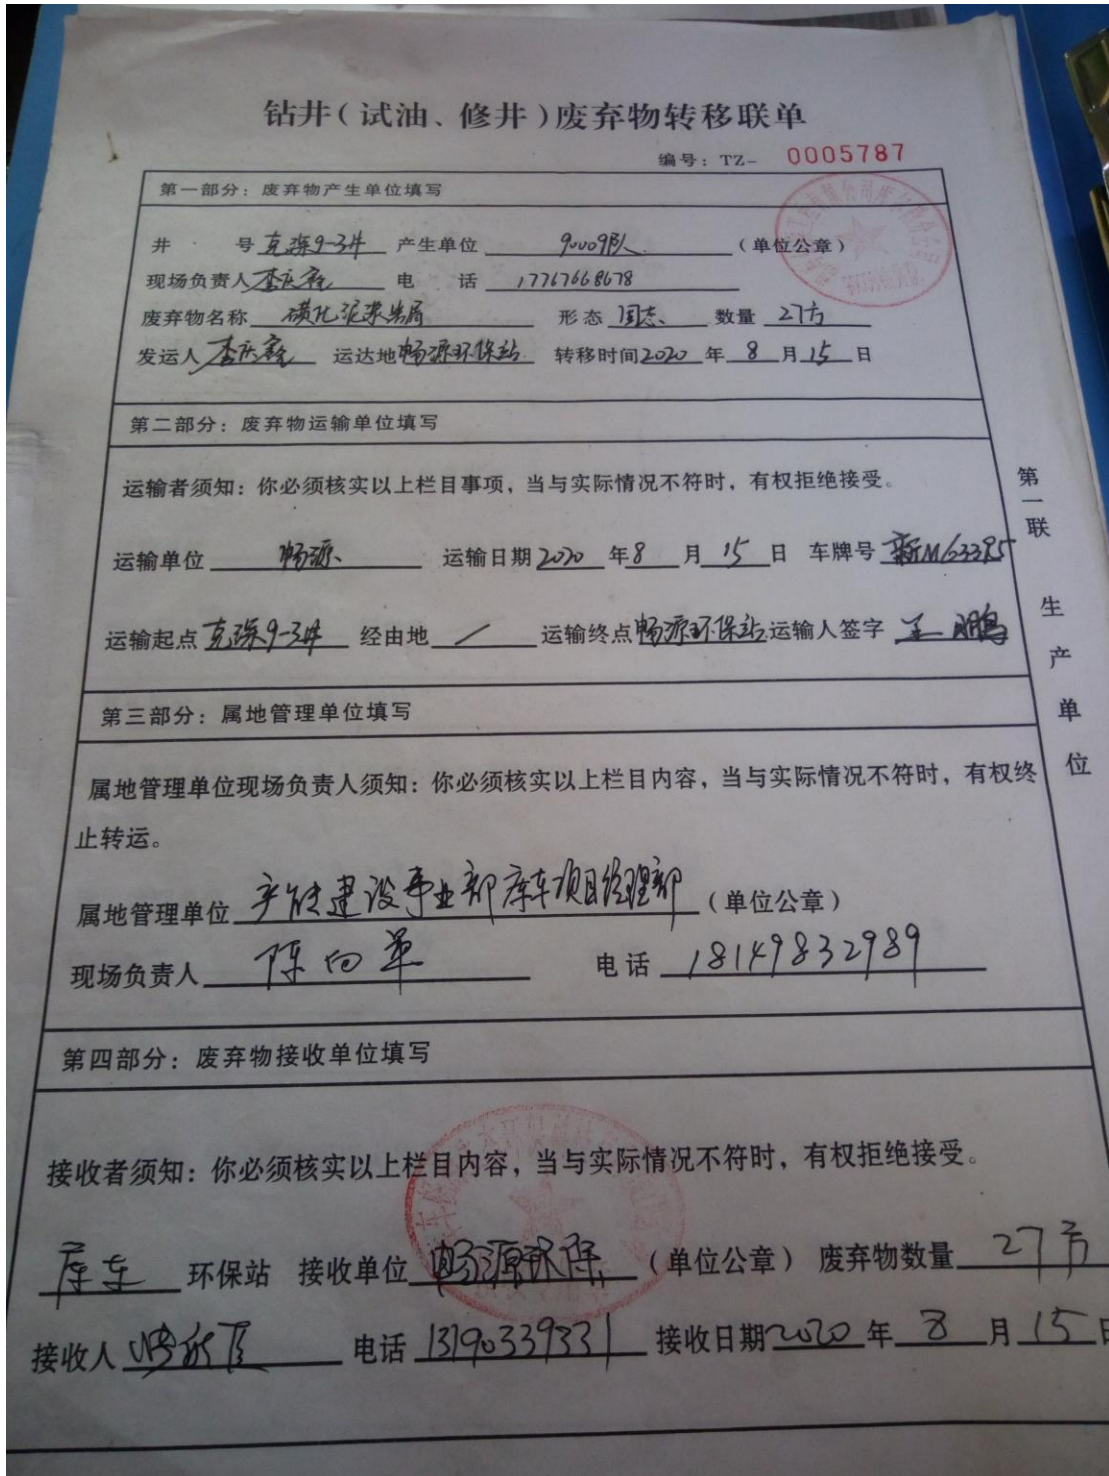 钻井(试油、修井)废弃物转移联单
编号:TZ- 0005787
第一部分:废弃物产生单位填写
井 号 克深9-3井 产生单位 90009队 (单位公章)
现场负责人 李庆 电 话 17767668678
废弃物名称 磺化泥浆岩屑 形态 固态 数量 27方
发运人 李庆 运达地 畅源环保站 转移时间 2020 年 8 月 15 日
第二部分:废弃物运输单位填写
运输者须知:你必须核实以上栏目事项,当与实际情况不符时,有权拒绝接受。
运输单位 畅源 运输日期 2020 年 8 月 15 日 车牌号 新M63385
运输起点 克深9-3井 经由地 / 运输终点 畅源环保站 运输人签字 鹏
第三部分:属地管理单位填写
属地管理单位现场负责人须知:你必须核实以上栏目内容,当与实际情况不符时,有权终
止转运。
属地管理单位 产能建设事业部库车项目经理部 (单位公章)
现场负责人 陈向军 电话 18149832989
第四部分:废弃物接收单位填写
接收者须知:你必须核实以上栏目内容,当与实际情况不符时,有权拒绝接受。
库车 环保站 接收单位 畅源环保 (单位公章) 废弃物数量 27方
接收人 电话 13190339331 接收日期 2020 年 8 月 15 日
第一联 生产单位